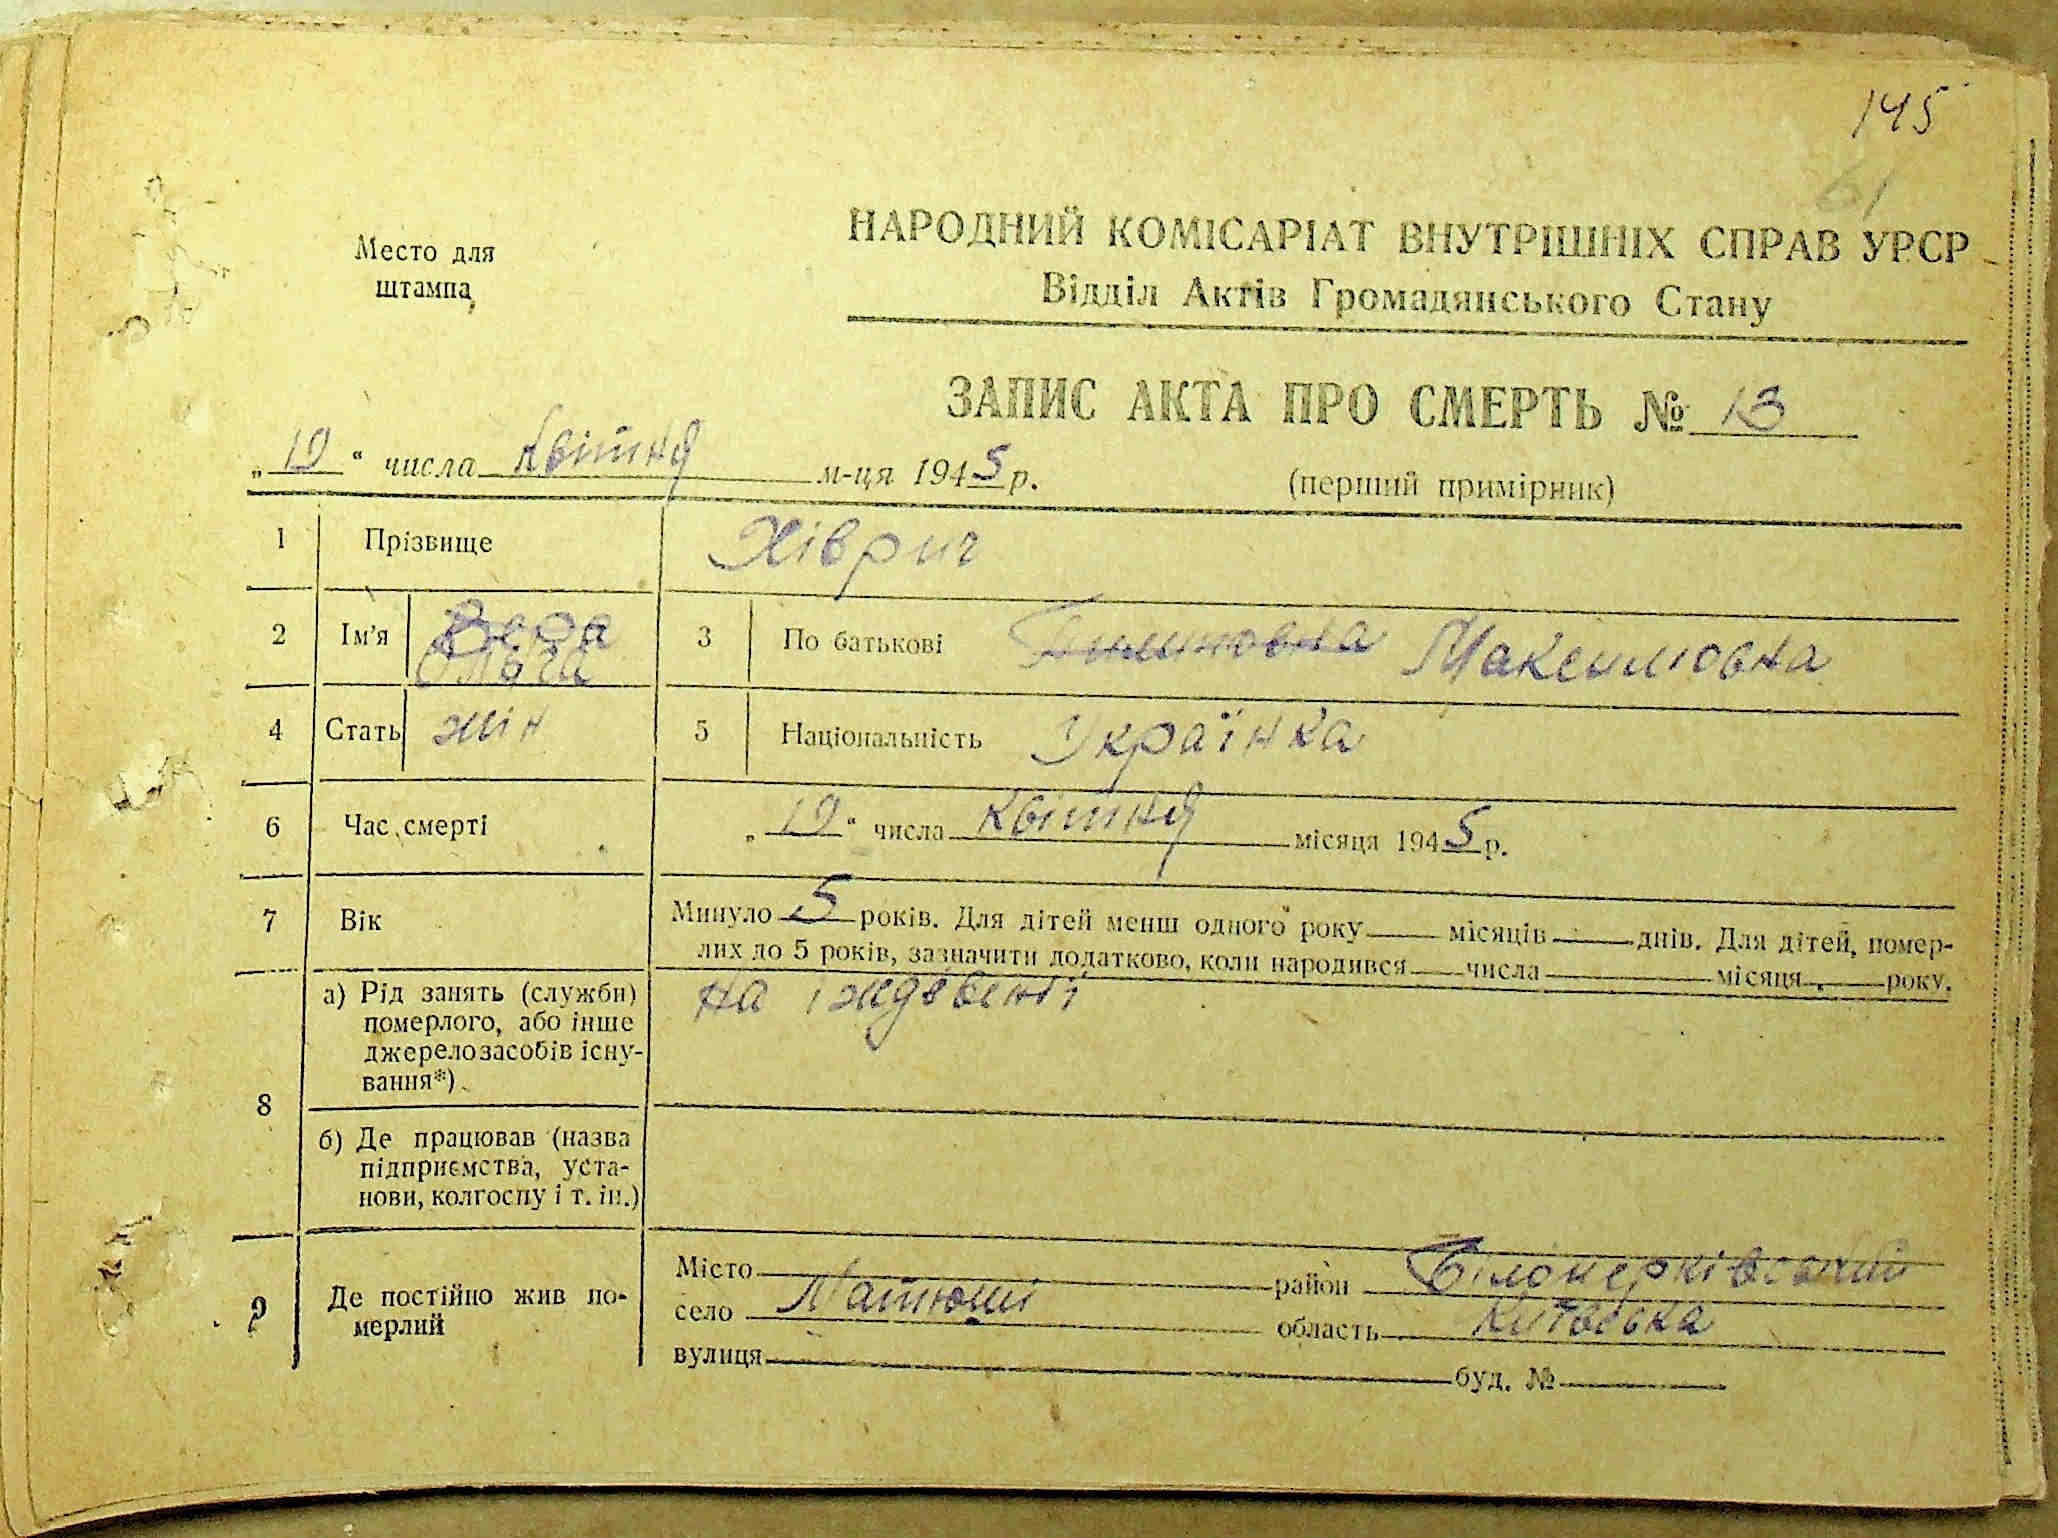 145
61
Место для
штампа
НАРОДНИЙ КОМІСАРІАТ ВНУТРІШНІХ СПРАВ УРСР
Відділ Актів Громадянського Стану
ЗАПИС АКТА ПРО СМЕРТЬ № 13
„19“ числа квітня м-ця 1945 р.
(перший примірник)
1 Прізвище Хіврич
2 Ім'я Вера Ольга 3 По батькові Максимовна
4 Стать жін 5 Національність Українка
6 Час смерті „19“ числа квітня місяця 1945 р.
7 Вік Минуло 5 років. Для дітей менш одного року місяців днів. Для дітей, помер-
лих до 5 років, зазначити додатково, коли народився числа місяця року.
8 а) Рід занять (служби) на іждевенії
померлого, або інше
джерело засобів існу-
вання*)
б) Де працював (назва
підприємства, уста-
нови, колгоспу і т. ін.)
9 Де постійно жив по-
мерлий
Місто район Білоцерківський
село Матюші область Київська
вулиця буд. №